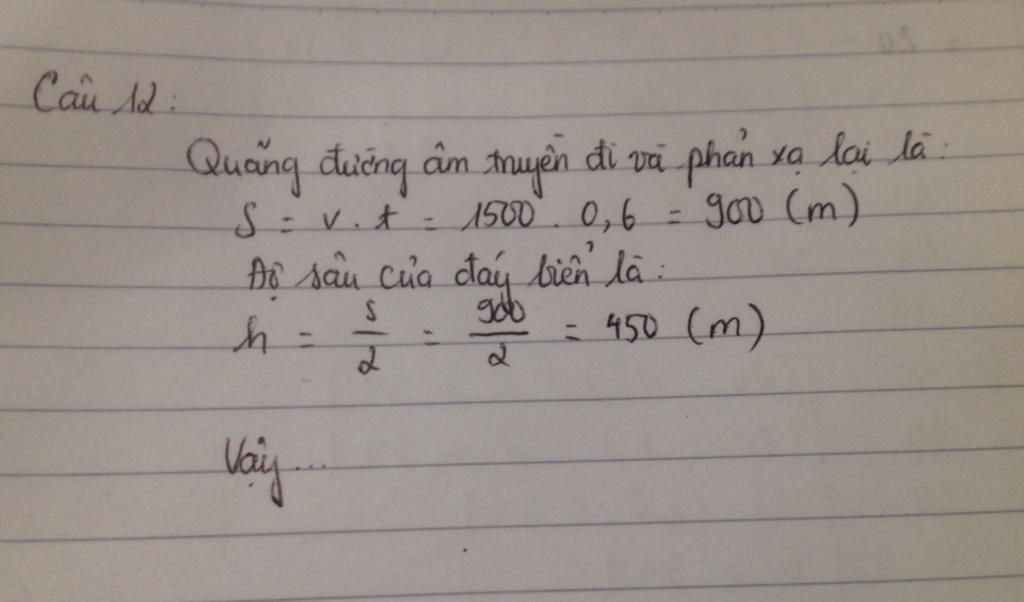 Câu 12:
Quãng đường âm truyền đi và phản xạ lại là:
S = v . t = 1500 . 0,6 = 900 (m)
Độ sâu của đáy biển là:
h = s/2 = 900/2 = 450 (m)
Vậy ...